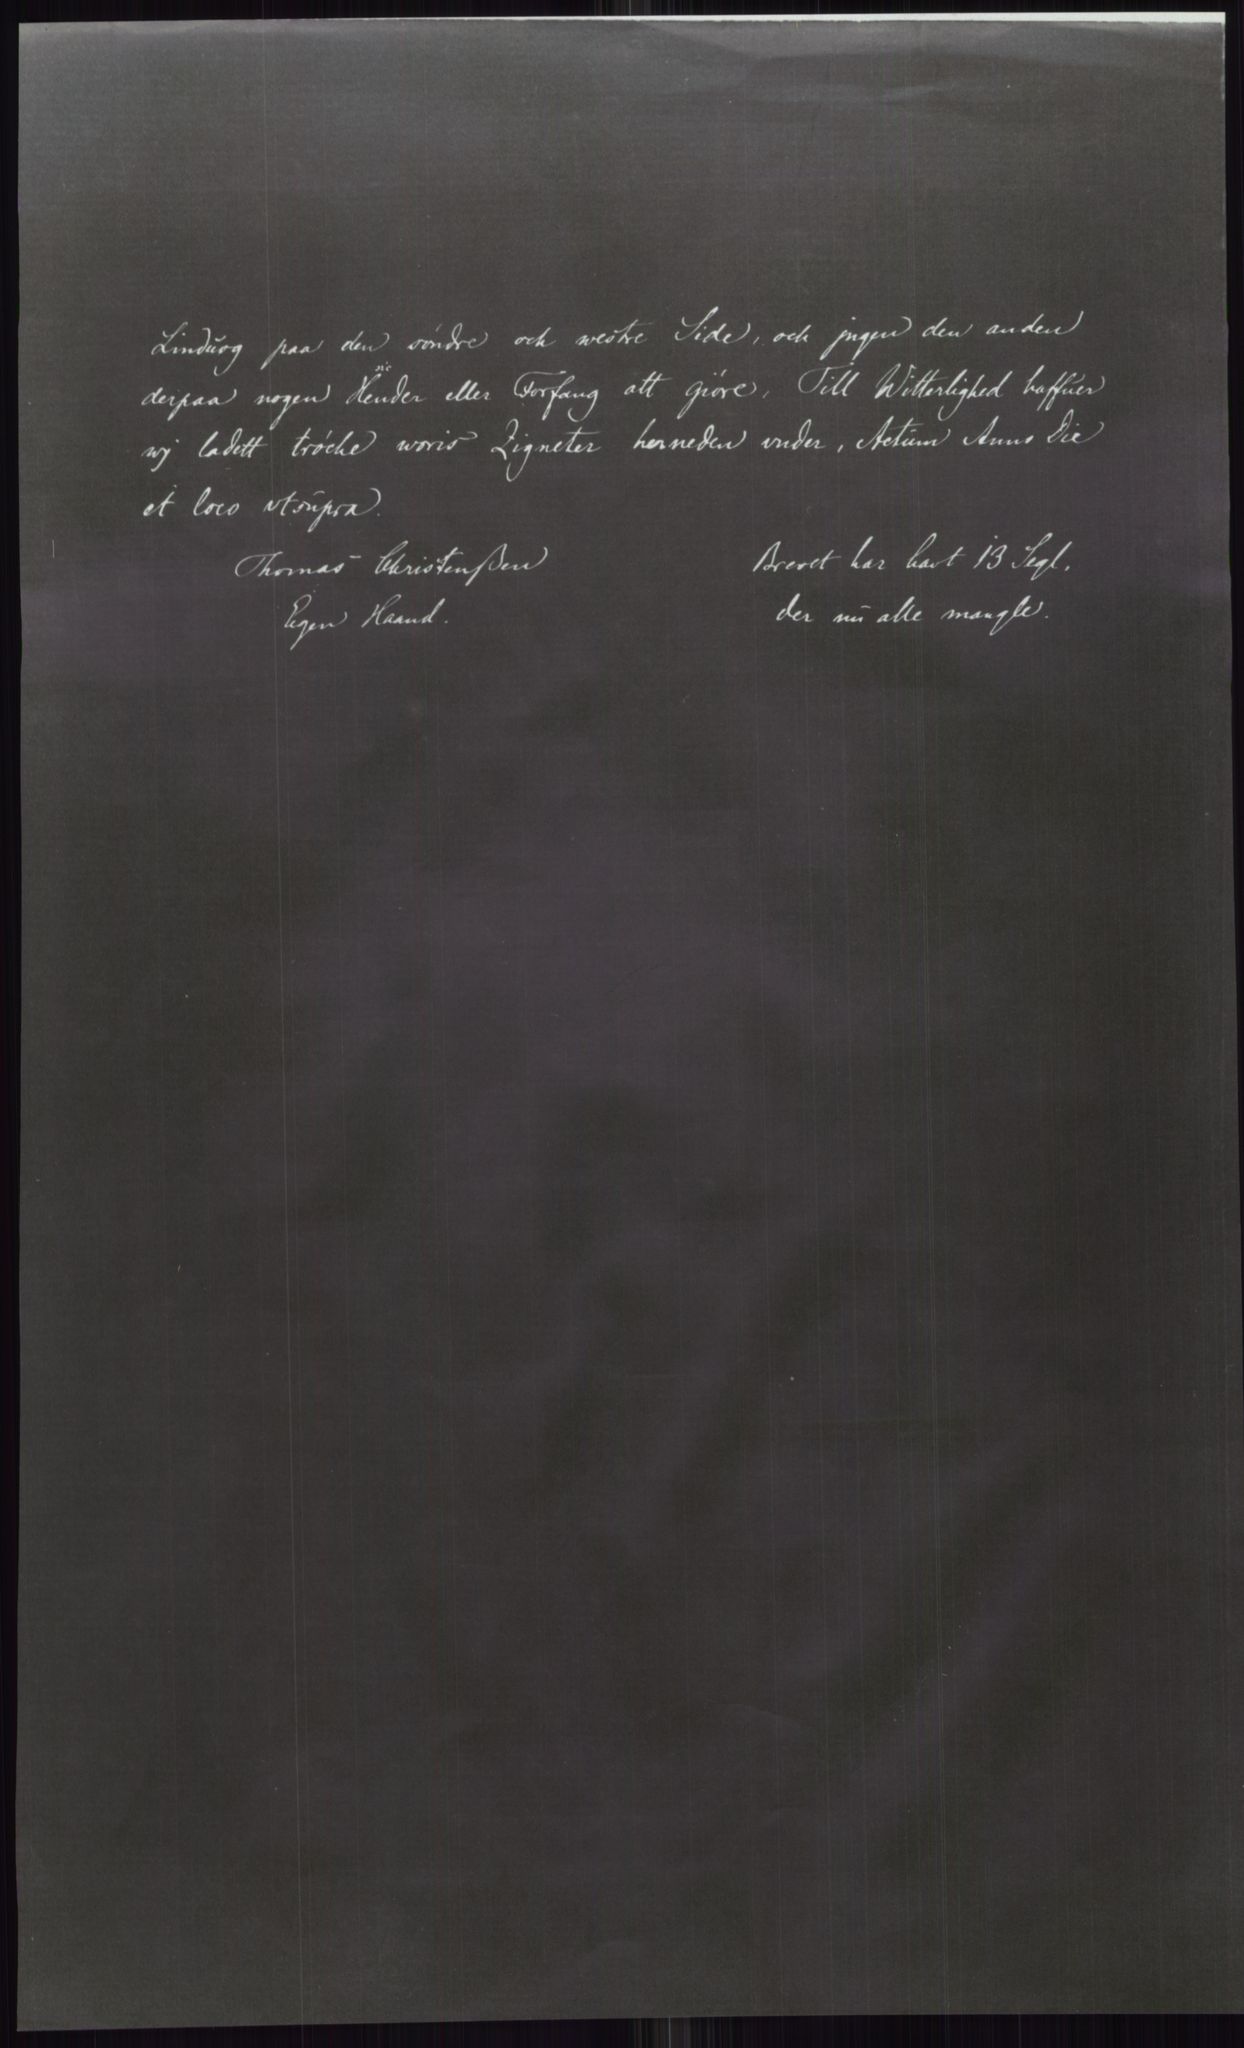 Linduog paa den söndre och westre Side, och jngen den anden
derpaa nogen Hender eller Forfang att giöre, Till Witterlighed haffuer
wj ladett tröche woris Zigneter herneden vnder, Actum Anno Die
et loco vtsupra.
Thomas Christenßen
Eigen Haand.
Brevet har havt 13 Segl,
der nu alle mangle.